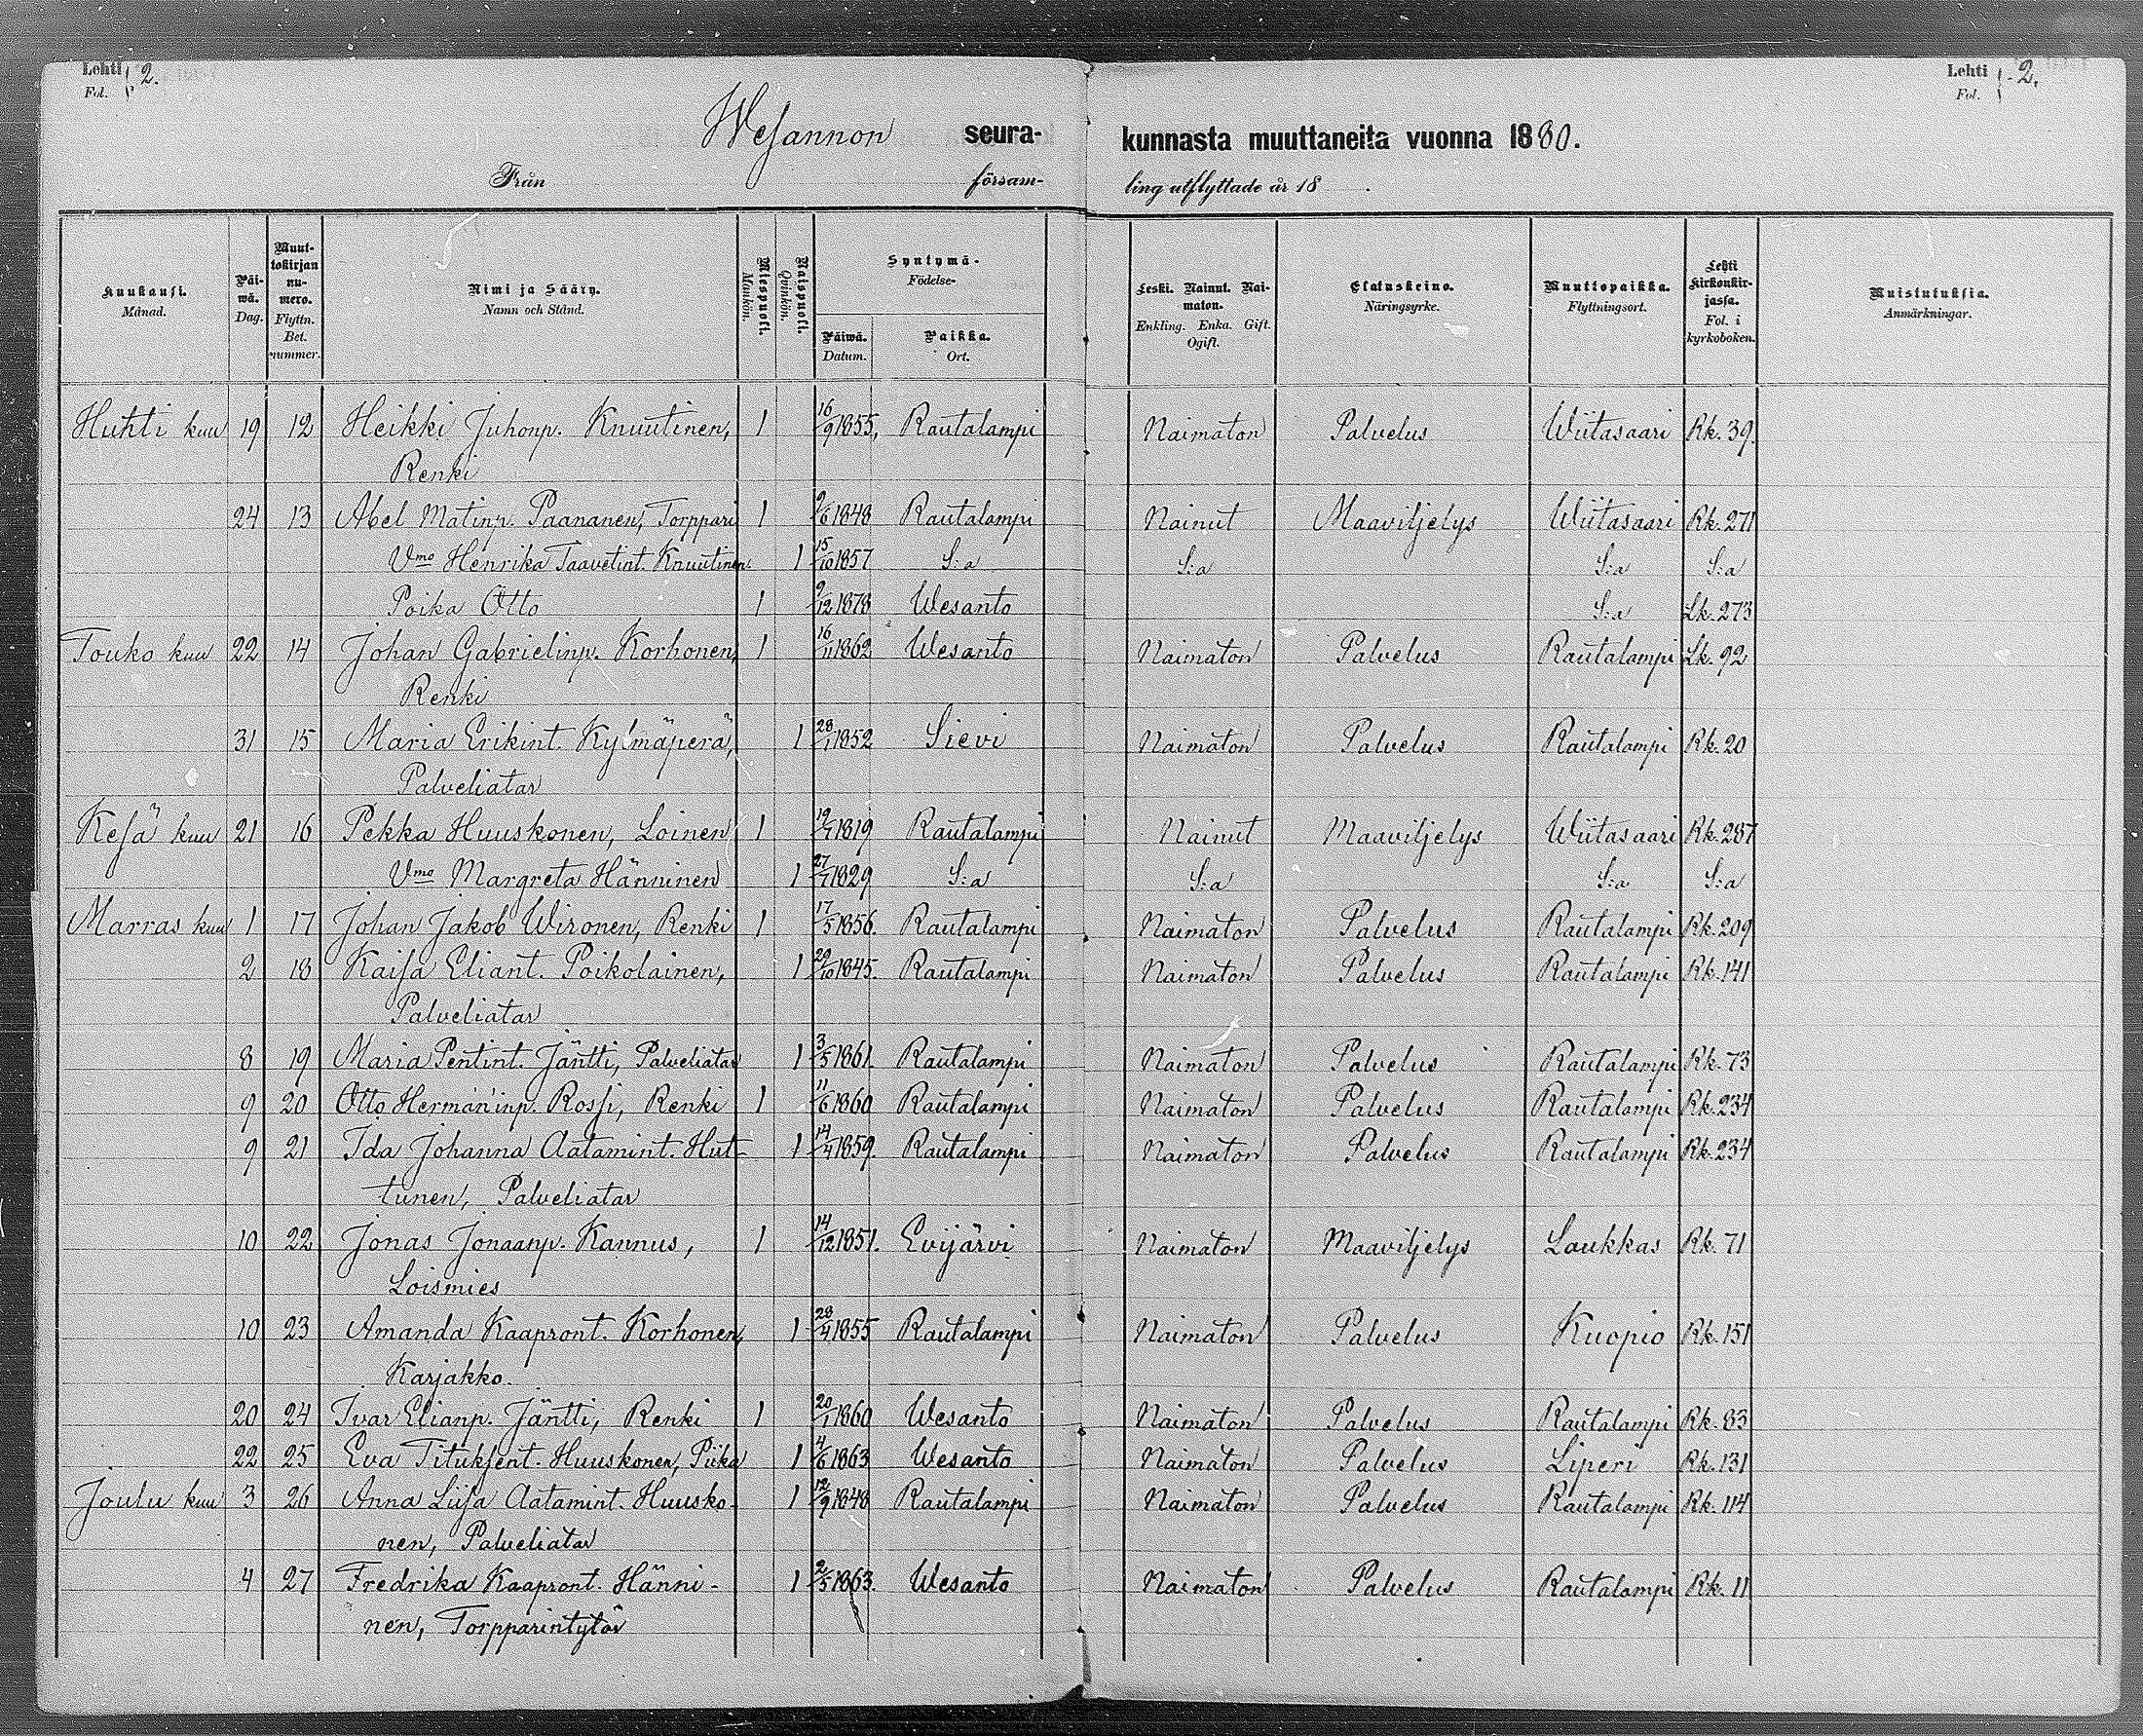 Lehti 2.
Fol.
Lehti 2.
Fol.
Wesannon seurakunnasta muuttaneita vuonna 1880.
Från församling utflyttade år 18 .
Kuukausi. Månad.
Päiwä. Dag.
Muuttokirjan numero. Flyttn. Bet. nummer.
Nimi ja Sääty. Namn och Stånd.
Miespuoli. Mankön.
Naispuoli. Qvinkön.
Syntymä- Födelse-
Päiwä. Datum.
Paikka. Ort.
Leski. Nainut. Naimaton. Enkling. Enka. Gift. Ogift.
Elatuskeino. Näringsyrke.
Muuttopaikka. Flyttningsort.
Lehti kirkonkirjassa. Fol. i kyrkoboken.
Muistutuksia. Anmärkningar.
Huhti kuu 19 12 Heikki Juhonp. Knuutinen, 1 16/9 1855, Rautalampi Naimaton Palvelus Wiitasaari Rk. 39.
Renki
24 13 Abel Matinp. Paananen, Torppari 1 9/6 1848 Rautalampi Nainut Maaviljelys Wiitasaari Rk. 271
Vmo Henrika Taavetint. Knuutinen 1 15/10 1857 S:a S:a S:a S:a
Poika Otto 1 9/12 1878 Wesanto S:a Lk. 273
Touko kuu 22 14 Johan Gabrielinp. Korhonen, 1 16/11 1862 Wesanto Naimaton Palvelus Rautalampi Lk. 92
Renki
31 15 Maria Erikint. Kylmäperä, 1 28/1 1852 Sievi Naimaton Palvelus Rautalampi Rk. 20
Palveliatar
Kesä kuu 21 16 Pekka Huuskonen, Loinen 1 19/7 1819 Rautalampi Nainut Maaviljelys Wiitasaari Rk. 287
Vmo Margreta Hänninen 1 27/7 1829 S:a S:a S:a S:a
Marras kuu 1 17 Johan Jakob Wironen, Renki 1 17/5 1856. Rautalampi Naimaton Palvelus Rautalampi Rk. 209
2 18 Kaisa Eliant. Poikolainen, 1 29/10 1845. Rautalampi Naimaton Palvelus Rautalampi Rk. 141
Palveliatar
8 19 Maria Pentint. Jäntti, Palveliatar 1 3/5 1861. Rautalampi Naimaton Palvelus Rautalampi Rk. 73
9 20 Otto Herman'inp. Rossi, Renki 1 11/6 1860 Rautalampi Naimaton Palvelus Rautalampi Rk. 234
9 21 Ida Johanna Aatamint. Hut- 1 14/4 1859. Rautalampi Naimaton Palvelus Rautalampi Rk. 234
tunen, Palveliatar
10 22 Jonas Jonaanp. Kannus, 1 14/12 1851. Evijärvi Naimaton Maaviljelys Laukkas Rk. 71
Loismies
10 23 Amanda Kaapront. Korhonen, 1 28/4 1855 Rautalampi Naimaton Palvelus Kuopio Rk. 151
Karjakko.
20 24 Ivar Elianp. Jäntti, Renki 1 20/1 1860 Wesanto Naimaton Palvelus Rautalampi Rk. 83
22 25 Eva Tituksent. Huuskonen, Piika 1 4/6 1863 Wesanto Naimaton Palvelus Liperi Rk. 131
Joulu kuu 3 26 Anna Liisa Aatamint. Huusko- 1 12/9 1848 Rautalampi Naimaton Palvelus Rautalampi Rk. 114
nen, Palveliatar
4 27 Fredrika Kaapront. Hänni- 1 2/5 1863. Wesanto Naimaton Palvelus Rautalampi Rk. 11
nen, Torpparintytär